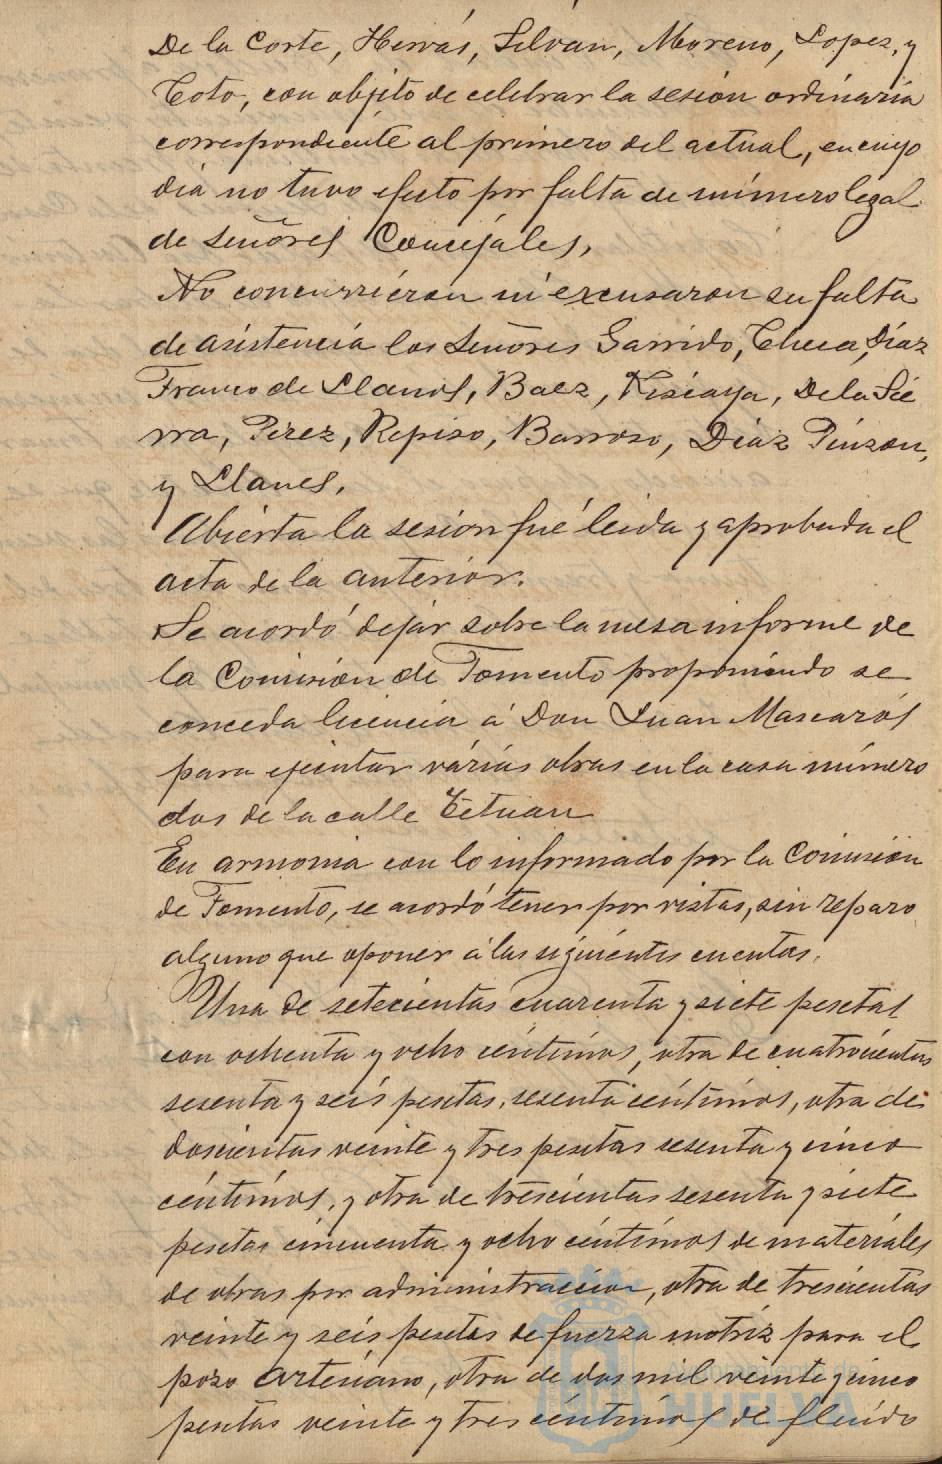 De la Corte, Hervás, Silván, Moreno, Lopez, y
Toto, con objeto de celebrar la sesión ordinaria
correspondiente al primero del actual, en cuyo
dia no tuvo efecto por falta de número legal
de Señores Concejales,
No concurrieron ni excusaron su falta
de asistencia los Señores Garrido, Checa, Díaz
Franco de Llanos, Baez, Vizcaya, De la Sie
rra, Perez, Repiso, Barroso, Díaz Pinzon,
y Llanes,
Abierta la sesion fué leida y aprobada el
acta de la anterior.
Se acordó dejar sobre la mesa informe de
la Comision de Fomento proponiendo se
conceda licencia á Don Juan Mascarós
para ejecutar várias obras en la casa número
dos de la calle Tetuan
En armonia con lo informado por la Comision
de Fomento, se acordó tener por vistas, sin reparo
alguno que oponer á las siguientes cuentas.
Una de setecientas cuarenta y siete pesetas
con ochenta y ocho céntimos, otra de cuatrocientas
sesenta y seis pesetas, sesenta céntimos, otra de
doscientas veinte y tres pesetas sesenta y cinco
céntimos, y otra de trescientas sesenta y siete
pesetas cincuenta y ocho céntimos de materiales
de obras por administraccion, otra de trescientas
veinte y seis pesetas de fuerza motriz para el
pozo Artesiano, otra de dos mil veinte y cinco
pesetas veinte y tres céntimos de fluido
Ayuntamiento de
HUELVA